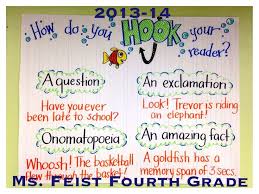 2013-14
How do you HOOK your
reader?
A question
Have you ever
been late to school?
An exclamation
Look! Trevor is riding
an elephant!
Onomatopoeia
Whoosh! The basketball
flew through the basket.
An amazing fact
A goldfish has a
memory span of 3 secs.
Ms. Feist Fourth Grade